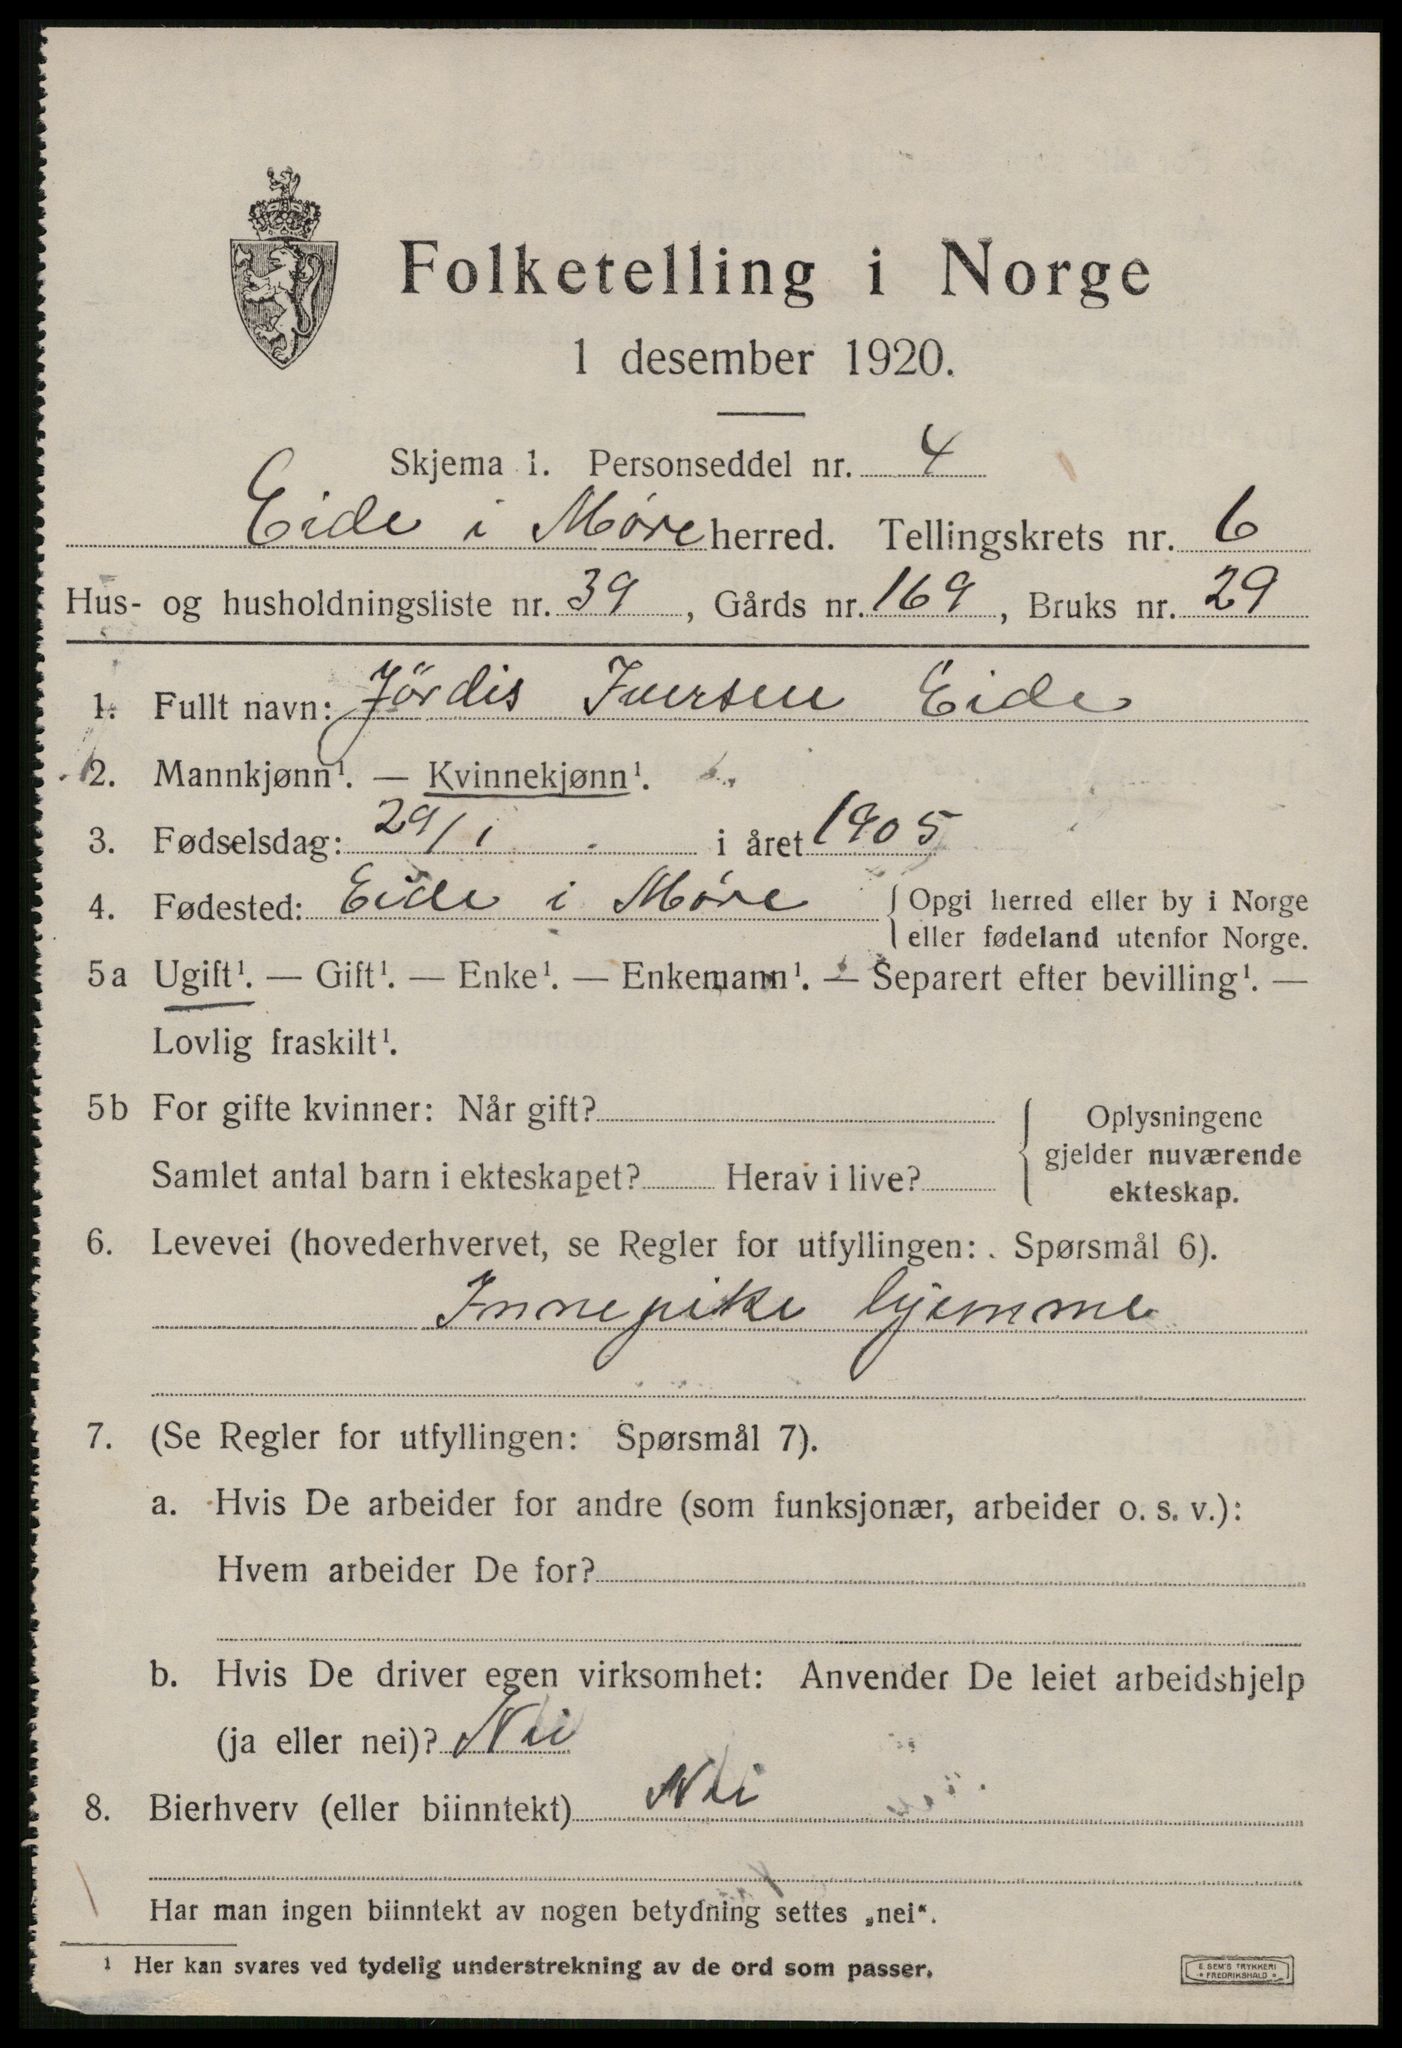 Folketelling i Norge
1 desember 1920.
Skjema 1. Personseddel nr. 4
Eide i Møre herred. Tellingskrets nr. 6
Hus- og husholdningsliste nr. 39, Gårds nr. 169, Bruks nr. 29
1. Fullt navn: Jördis Iversen Eide
2. Mannkjønn¹. — Kvinnekjønn¹.
3. Fødselsdag: 29/1 i året 1905
4. Fødested: Eide i Møre { Opgi herred eller by i Norge
eller fødeland utenfor Norge.
5a Ugift¹. — Gift¹. — Enke¹. — Enkemann¹. — Separert efter bevilling¹. —
Lovlig fraskilt¹.
5b For gifte kvinner: Når gift?
Samlet antal barn i ekteskapet? Herav i live?
{ Oplysningene
gjelder nuværende
ekteskap.
6. Levevei (hovederhvervet, se Regler for utfyllingen: Spørsmål 6).
Innepike hjemme
7. (Se Regler for utfyllingen: Spørsmål 7).
a. Hvis De arbeider for andre (som funksjonær, arbeider o. s. v.):
Hvem arbeider De for?
b. Hvis De driver egen virksomhet: Anvender De leiet arbeidshjelp
(ja eller nei)? Nei
8. Bierhverv (eller biinntekt) Nei
Har man ingen biinntekt av nogen betydning settes „nei“.
¹ Her kan svares ved tydelig understrekning av de ord som passer.
E. SEM'S TRYKKERI
FREDRIKSHALD